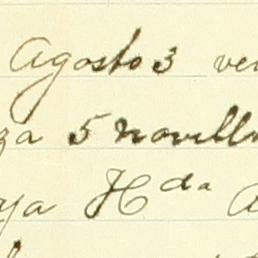 Agosto 3 ven
za 5 novillo
ya H^da A